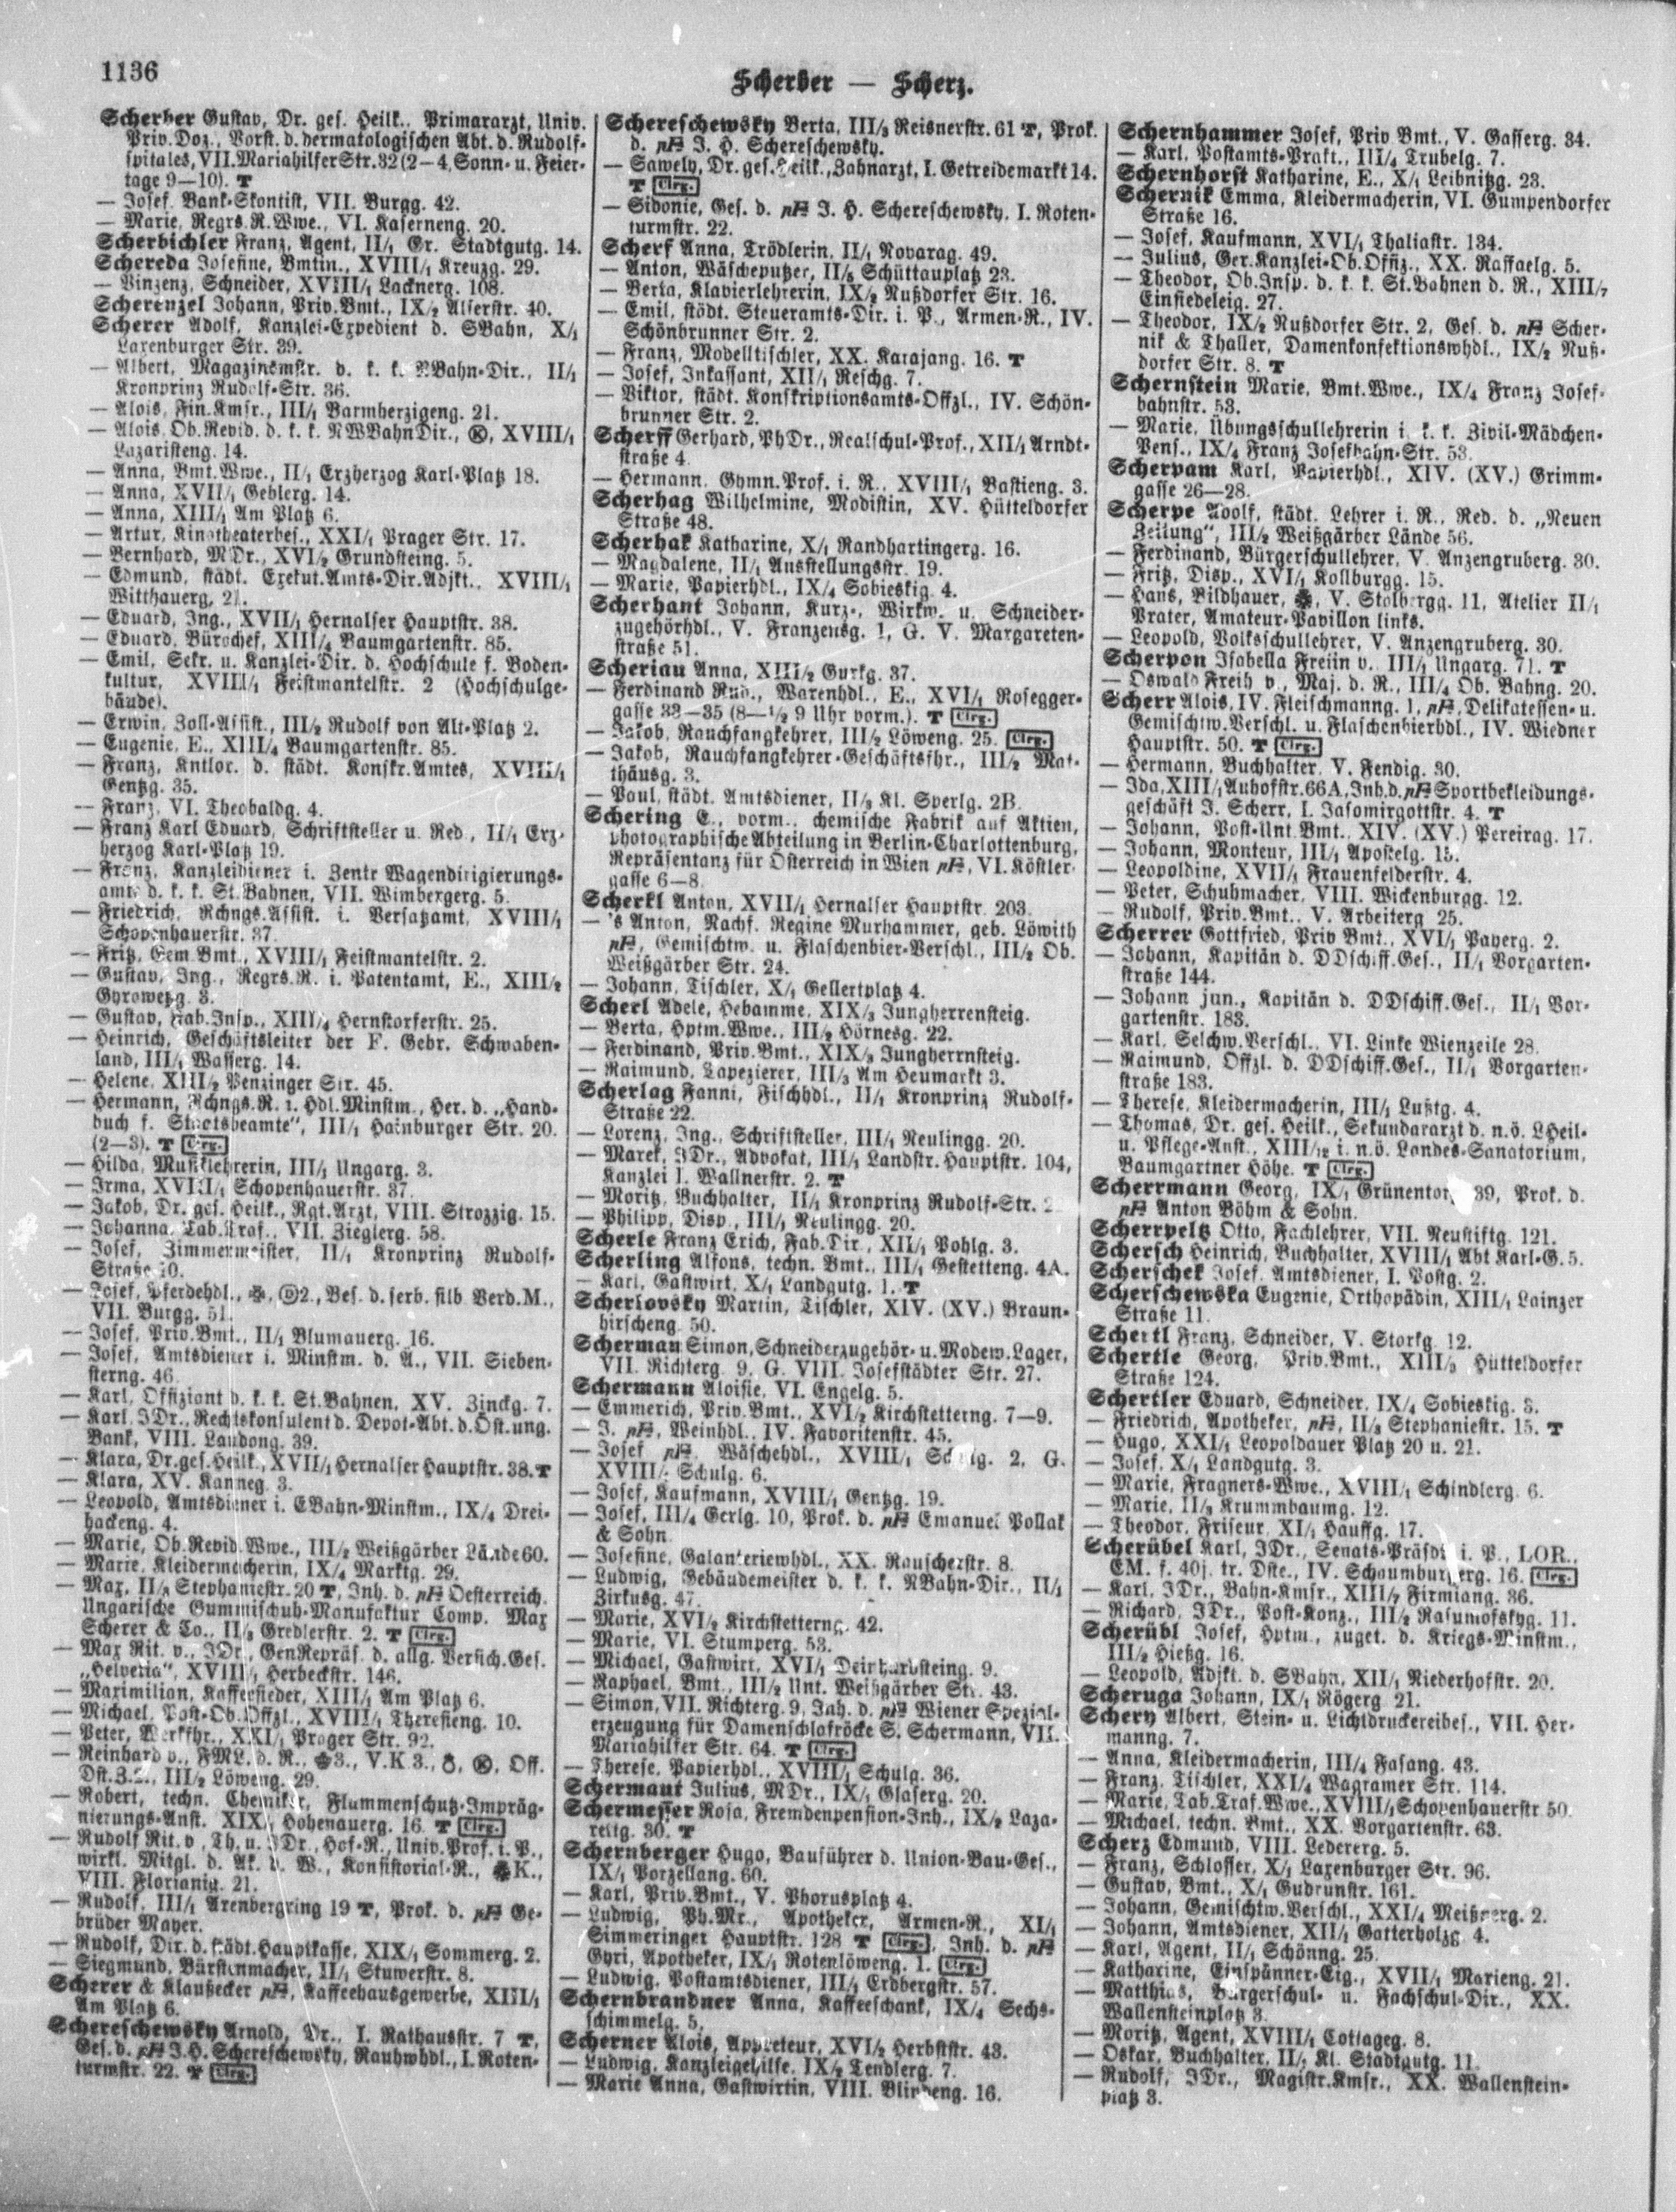 1136
Scherber — Scherz.
Scherber Gustav, Dr. ges. Heilk., Primararzt, Univ.
Priv.Doz., Vorst. d. dermatologischen Abt. d. Rudolf-
spitales, VII. Mariahilfer Str. 32 (2—4, Sonn- u. Feier-
tage 9—10). T
— Josef, Bank-Skontist, VII. Burgg. 42.
— Marie, Regrs.R.Wwe., VI. Kaserneng. 20.
Scherbichler Franz, Agent, II/1 Gr. Stadtgutg. 14.
Schereda Josefine, Bmtin., XVIII/1 Kreuzg. 29.
— Vinzenz, Schneider, XVIII/1 Lacknerg. 108.
Scherenzel Johann, Priv.Bmt., IX/2 Alserstr. 40.
Scherer Adolf, Kanzlei-Expedient d. SBahn, X/1
Laxenburger Str. 39.
— Albert, Magazinsmstr. d. k. k. Bahn-Dir., II/1
Kronprinz Rudolf-Str. 36.
— Alois, Fin.Kmsr., III/1 Barmherzigeng. 21.
— Alois, Ob.Revid. d. k. k. NWBahnDir., Ⓚ, XVIII/1
Lazaristeng. 14.
— Anna, Bmt.Wwe., II/1 Erzherzog Karl-Platz 18.
— Anna, XVII/1 Geblerg. 14.
— Anna, XIII/1 Am Platz 6.
— Artur, Kinotheaterbes., XXI/1 Prager Str. 17.
— Bernhard, MDr., XVI/2 Grundsteing. 5.
— Edmund, städt. Exekut.Amts-Dir.Adjkt., XVIII/1
Witthauerg. 21.
— Eduard, Ing., XVII/1 Hernalser Hauptstr. 38.
— Eduard, Bürochef, XIII/4 Baumgartenstr. 85.
— Emil, Sekr. u. Kanzlei-Dir. d. Hochschule f. Boden-
kultur, XVIII/1 Feistmantelstr. 2 (Hochschulge-
bäude).
— Erwin, Zoll-Assist., III/2 Rudolf von Alt-Platz 2.
— Eugenie, E., XIII/4 Baumgartenstr. 85.
— Franz, Kntlor. d. städt. Konskr.Amtes, XVIII/1
Gentzg. 35.
— Franz, VI. Theobaldg. 4.
— Franz Karl Eduard, Schriftsteller u. Red., II/1 Erz-
herzog Karl-Platz 19.
— Franz, Kanzleidiener i. Zentr Wagendirigierungs-
amt d. k. k. St.Bahnen, VII. Wimbergerg. 5.
— Friedrich, Rchngs.Assist. i. Versatzamt, XVIII/1
Schopenhauerstr. 37.
— Fritz, Gem.Bmt., XVIII/1 Feistmantelstr. 2.
— Gustav, Ing., Regrs.R. i. Patentamt, E., XIII/2
Gyrowetzg. 3.
— Gustav, Fab.Insp., XIII/4 Hernstorferstr. 25.
— Heinrich, Geschäftsleiter der F. Gebr. Schwaben-
land, III/1 Wasserg. 14.
— Helene, XIII/2 Penzinger Str. 45.
— Hermann, Rchngs.R. i. Hdl.Minstm., Her. d. „Hand-
buch f. Staatsbeamte“, III/1 Hainburger Str. 20.
(2—3). T Clrg.
— Hilda, Musiklehrerin, III/1 Ungarg. 3.
— Irma, XVIII/1 Schopenhauerstr. 37.
— Jakob, Dr. ges. Heilk., Rgt.Arzt, VIII. Strozzig. 15.
— Johanna, Tab.Traf., VII. Zieglerg. 58.
— Josef, Zimmermeister, II/1 Kronprinz Rudolf-
Straße 10.
— Josef, Pferdehdl., Ⓓ2., Bes. d. serb. silb Verd.M.,
VII. Burgg. 51.
— Josef, Priv.Bmt., II/1 Blumauerg. 16.
— Josef, Amtsdiener i. Minstm. d. Ä., VII. Sieben-
sterng. 46.
— Karl, Offiziant d. k. k. St.Bahnen, XV. Zinckg. 7.
— Karl, JDr., Rechtskonsulent d. Depot-Abt. d. Öst.ung.
Bank, VIII. Laudong. 39.
— Klara, Dr. ges. Heilk., XVII/1 Hernalser Hauptstr. 38. T
— Klara, XV. Kanneg. 3.
— Leopold, Amtsdiener i. EBahn-Minstm., IX/4 Drei-
hackeng. 4.
— Marie, Ob.Revid.Wwe., III/2 Weißgärber Lände 60.
— Marie, Kleidermacherin, IX/4 Marktg. 29.
— Max, II/2 Stephaniestr. 20 T, Inh. d. pF Oesterreich.
Ungarische Gummischuh-Manufaktur Comp. Max
Scherer & Co., II/3 Gredlerstr. 2. T Clrg.
— Max Rit. v., JDr., GenRepräs. d. allg. Versich.Ges.
„Helvetia“, XVIII/1 Herbeckstr. 146.
— Maximilian, Kaffeesieder, XIII/1 Am Platz 6.
— Michael, Post-Ob.Offzl., XVIII/1 Theresieng. 10.
— Peter, Werkfhr., XXI/1 Prager Str. 92.
— Reinhard v., FML. d. R., 3., V.K.3., Ⓚ, Off.
III/2 Löweng. 29.
— Robert, techn. Chemiker, Flammenschutz-Impräg-
nierungs-Anst. XIX/1 Hohenauerg. 16. T Clrg.
— Rudolf Rit. v., Th. u. JDr., Hof-R., Univ.Prof. i. P.,
wirkl. Mitgl. d. Ak. d. W., Konsistorial-R., K.,
VIII. Florianig. 21.
— Rudolf, III/1 Arenbergring 19 T, Prok. d. pF Ge-
brüder Mayer.
— Rudolf, Dir. d. städt. Hauptkasse, XIX/1 Sommerg. 2.
— Siegmund, Bürstenmacher, II/1 Stuwerstr. 8.
Scherer & Klaußecker pF, Kaffeehausgewerbe, XIII/1
Am Platz 6.
Schereschewsky Arnold, Dr., I. Rathausstr. 7 T,
Ges. d. pF J. H. Schereschewsky, Rauhwhdl., I. Roten-
turmstr. 22. T Clrg.
Schereschewsky Berta, III/3 Reisnerstr. 61 T, Prok.
d. pF J. H. Schereschewsky.
— Sawely, Dr. ges. Heilk., Zahnarzt, I. Getreidemarkt 14.
T Clrg.
— Sidonie, Ges. d. pF J. H. Schereschewsky, I. Roten-
turmstr. 22.
Scherf Anna, Trödlerin, II/1 Novarag. 49.
— Anton, Wäscheputzer, II/3 Schüttauplatz 23.
— Berta, Klavierlehrerin, IX/2 Nußdorfer Str. 16.
— Emil, städt. Steueramts-Dir. i. P., Armen-R., IV.
Schönbrunner Str. 2.
— Franz, Modelltischler, XX. Karajang. 16. T
— Josef, Inkassant, XII/1 Reschg. 7.
— Viktor, städt. Konskriptionsamts-Offzl., IV. Schön-
brunner Str. 2.
Scherff Gerhard, PhDr., Realschul-Prof., XII/1 Arndt-
straße 4.
— Hermann, Gymn.Prof. i. R., XVIII/1 Bastieng. 3.
Scherhag Wilhelmine, Modistin, XV. Hütteldorfer
Straße 48.
Scherhak Katharine, X/1 Randhartingerg. 16.
— Magdalene, II/1 Ausstellungsstr. 19.
— Marie, Papierhdl., IX/4 Sobieskig. 4.
Scherhant Johann, Kurz-, Wirkw. u. Schneider-
zugehörhdl., V. Franzensg. 1, G. V. Margareten-
straße 51.
Scheriau Anna, XIII/2 Gurkg. 37.
— Ferdinand Rud., Warenhdl., E., XVI/1 Rosegger-
gasse 33—35 (8—1/2 9 Uhr vorm.). T Clrg.
— Jakob, Rauchfangkehrer, III/2 Löweng. 25. Clrg.
— Jakob, Rauchfangkehrer-Geschäftsfhr., III/2 Mat-
thäusg. 3.
— Paul, städt. Amtsdiener, II/3 Kl. Sperlg. 2B.
Schering E., vorm., chemische Fabrik auf Aktien,
photographische Abteilung in Berlin-Charlottenburg,
Repräsentanz für Österreich in Wien pF, VI. Köstler-
gasse 6—8.
Scherkl Anton, XVII/1 Hernalser Hauptstr. 203.
— 's Anton, Nachf. Regine Murhammer, geb. Löwith
pF, Gemischtw. u. Flaschenbier-Verschl., III/2 Ob.
Weißgärber Str. 24.
— Johann, Tischler, X/1 Gellertplatz 4.
Scherl Adele, Hebamme, XIX/3 Jungherrensteig.
— Berta, Hptm.Wwe., III/2 Hörnesg. 22.
— Ferdinand, Priv.Bmt., XIX/3 Jungherrnsteig.
— Raimund, Tapezierer, III/3 Am Heumarkt 3.
Scherlag Fanni, Fischhdl., II/1 Kronprinz Rudolf-
Straße 22.
— Lorenz, Ing., Schriftsteller, III/1 Neulingg. 20.
— Marek, JDr., Advokat, III/1 Landstr. Hauptstr. 104,
Kanzlei I. Wallnerstr. 2. T
— Moritz, Buchhalter, II/1 Kronprinz Rudolf-Str.
— Philipp, Disp., III/1 Neulingg. 20.
Scherle Franz Erich, Fab.Dir., XII/1 Pohlg. 3.
Scherling Alfons, techn. Bmt., III/1 Gestetteng. 4A.
— Karl, Gastwirt, X/1 Landgutg. 1. T
Scherlovsky Martin, Tischler, XIV. (XV.) Braun-
hirscheng. 50.
Scherman Simon, Schneiderzugehör- u. Modew.Lager,
VII. Richterg. 9, G. VIII. Josefstädter Str. 27.
Schermann Aloisie, VI. Engelg. 5.
— Emmerich, Priv.Bmt., XVI/2 Kirchstetterng. 7—9.
— J. pF, Weinhdl., IV. Favoritenstr. 45.
— Josef pF, Wäschehdl., XVIII/1 2, G.
XVIII/1 Schulg. 6.
— Josef, Kaufmann, XVIII/1 Gentzg. 19.
— Josef, III/4 Gerlg. 10, Prok. d. pF Emanuel Pollak
& Sohn.
— Josefine, Galanteriewhdl., XX. Rauscherstr. 8.
— Ludwig, Gebäudemeister d. k. k. NBahn-Dir., II/1
Zirkusg. 47.
— Marie, XVI/2 Kirchstetterng. 42.
— Marie, VI. Stumperg. 53.
— Michael, Gastwirt, XVI/1 Deinhardsteing. 9.
— Raphael, Bmt., III/2 Unt. Weißgärber Str. 43.
— Simon, VII. Richterg. 9, Inh. d. pF Wiener Spezial-
erzeugung für Damenschlafröcke S. Schermann, VII.
Mariahilfer Str. 64. T Clrg.
— Therese, Papierhdl., XVIII/1 Schulg. 36.
Schermant Julius, MDr., IX/1 Glaserg. 20.
Schermesser Rosa, Fremdenpension-Inh., IX/2 Laza-
rettg. 30. T
Schernberger Hugo, Bauführer d. Union-Bau-Ges.,
IX/1 Porzellang. 60.
— Karl, Priv.Bmt., V. Phorusplatz 4.
— Ludwig, Ph.Mr., Apotheker, Armen-R., XI/1
Simmeringer Hauptstr. 128 T Clrg., Inh. d. pF
Gyri, Apotheker, IX/1 Rotenlöweng. 1. Clrg.
— Ludwig, Postamtsdiener, III/1 Erdbergstr. 57.
Schernbrandner Anna, Kaffeeschank, IX/4 Sechs-
schimmelg. 5.
Scherner Alois, Appreteur, XVI/2 Herbststr. 43.
— Ludwig, Kanzleigehilfe, IX/2 Tendlerg. 7.
— Marie Anna, Gastwirtin, VIII. Blindeng. 16.
Schernhammer Josef, Priv Bmt., V. Gasserg. 34.
— Karl, Postamts-Prakt., III/4 Trubelg. 7.
Schernhorst Katharine, E., X/1 Leibnitzg. 23.
Schernik Emma, Kleidermacherin, VI. Gumpendorfer
Straße 16.
— Josef, Kaufmann, XVI/1 Thaliastr. 134.
— Julius, Ger.Kanzlei-Ob.Offiz., XX. Raffaelg. 5.
— Theodor, Ob.Insp. d. k. k. St.Bahnen d. R., XIII/7
Einsiedeleig. 27.
— Theodor, IX/2 Nußdorfer Str. 2, Ges. d. pF Scher-
nik & Thaller, Damenkonfektionswhdl., IX/2 Nuß-
dorfer Str. 8. T
Schernstein Marie, Bmt.Wwe., IX/4 Franz Josef-
bahnstr. 53.
— Marie, Übungsschullehrerin i. k. k. Zivil-Mädchen-
Pens., IX/4 Franz Josefbahn-Str. 53.
Scherpam Karl, Papierhdl., XIV. (XV.) Grimm-
gasse 26—28.
Scherpe Adolf, städt. Lehrer i. R., Red. d. „Neuen
Zeitung“, III/2 Weißgärber Lände 56.
— Ferdinand, Bürgerschullehrer, V. Anzengruberg. 30.
— Fritz, Disp., XVI/1 Kollburgg. 15.
— Hans, Bildhauer, V. Stolbergg. 11, Atelier II/1
Prater, Amateur-Pavillon links.
— Leopold, Volksschullehrer, V. Anzengruberg. 30.
Scherpon Isabella Freiin v., III/1 Ungarg. 71. T
— Oswald Freih v., Maj. d. R., III/4 Ob. Bahng. 20.
Scherr Alois, IV. Fleischmanng. 1, pF, Delikatessen- u.
Gemischtw.Verschl. u. Flaschenbierhdl., IV. Wiedner
Hauptstr. 50. T Clrg.
— Hermann, Buchhalter, V. Fendig. 30.
— Ida, XIII/1 Auhofstr. 66A, Inh. d. pF Sportbekleidungs-
geschäft J. Scherr, I. Jasomirgottstr. 4. T
— Johann, Post-Unt.Bmt., XIV. (XV.) Pereirag. 17.
— Johann, Monteur, III/1 Apostelg. 15.
— Leopoldine, XVII/1 Frauenfelderstr. 4.
— Peter, Schuhmacher, VIII. Wickenburgg. 12.
— Rudolf, Priv.Bmt., V. Arbeiterg. 25.
Scherrer Gottfried, Priv Bmt., XVI/1 Payerg. 2.
— Johann, Kapitän d. DDschiff.Ges., II/1 Vorgarten-
straße 144.
— Johann jun., Kapitän d. DDschiff.Ges., II/1 Vor-
gartenstr. 183.
— Karl, Selchw.Verschl., VI. Linke Wienzeile 28.
— Raimund, Offzl. d. DDschiff.Ges., II/1 Vorgarten-
straße 183.
— Therese, Kleidermacherin, III/1 Lußtg. 4.
— Thomas, Dr. ges. Heilk., Sekundararzt d. n.ö. LHeil-
u. Pflege-Anst., XIII/12 i. n.ö. Landes-Sanatorium,
Baumgartner Höhe. T Clrg.
Scherrmann Georg, IX/1 39, Prok. d.
pF Anton Böhm & Sohn.
Scherrpeltz Otto, Fachlehrer, VII. Neustiftg. 121.
Schersch Heinrich, Buchhalter, XVIII/1 Abt Karl-G. 5.
Scherschek Josef, Amtsdiener, I. Postg. 2.
Scherschewska Eugenie, Orthopädin, XIII/1 Lainzer
Straße 11.
Schertl Franz, Schneider, V. Storkg. 12.
Schertle Georg, Priv.Bmt., XIII/3 Hütteldorfer
Straße 124.
Schertler Eduard, Schneider, IX/4 Sobieskig. 3.
— Friedrich, Apotheker, pF, II/3 Stephaniestr. 15. T
— Hugo, XXI/1 Leopoldauer Platz 20 u. 21.
— Josef, X/1 Landgutg. 3.
— Marie, Fragners-Wwe., XVIII/1 Schindlerg. 6.
— Marie, II/3 Krummbaumg. 12.
— Theodor, Friseur, XI/1 Hauffg. 17.
Scherübel Karl, JDr., Senats-Präsdt i. P., LOR.,
EM. f. 40j. tr. Dste., IV. Schaumburgerg. 16. Clrg.
— Karl, JDr., Bahn-Kmsr., XIII/7 Firmiang. 36.
— Richard, JDr., Post-Konz., III/2 Rasumofskyg. 11.
Scherübl Josef, Hptm., zuget. d. Kriegs-Minstm.,
III/2 Hießg. 16.
— Leopold, Adjkt. d. SBahn, XII/1 Niederhofstr. 20.
Scheruga Johann, IX/1 Rögerg. 21.
Schery Albert, Stein- u. Lichtdruckereibes., VII. Her-
manng. 7.
— Anna, Kleidermacherin, III/4 Fasang. 43.
— Franz, Tischler, XXI/4 Wagramer Str. 114.
— Marie, Tab.Traf.Wwe., XVIII/1 Schopenhauerstr. 50.
— Michael, techn. Bmt., XX. Vorgartenstr. 63.
Scherz Edmund, VIII. Ledererg. 5.
— Franz, Schlosser, X/1 Laxenburger Str. 96.
— Gustav, Bmt., X/1 Gudrunstr. 161.
— Johann, Gemischtw.Verschl., XXI/4 Meißnerg. 2.
— Johann, Amtsdiener, XII/1 Gatterholzg. 4.
— Karl, Agent, II/1 Schönng. 25.
— Katharine, Einspänner-Eig., XVII/1 Marieng. 21.
— Matthias, Bürgerschul- u. Fachschul-Dir., XX.
Wallensteinplatz 3.
— Moritz, Agent, XVIII/1 Cottageg. 8.
— Oskar, Buchhalter, II/1 Kl. Stadtgutg. 11.
— Rudolf, JDr., Magistr.Kmsr., XX. Wallenstein-
platz 3.